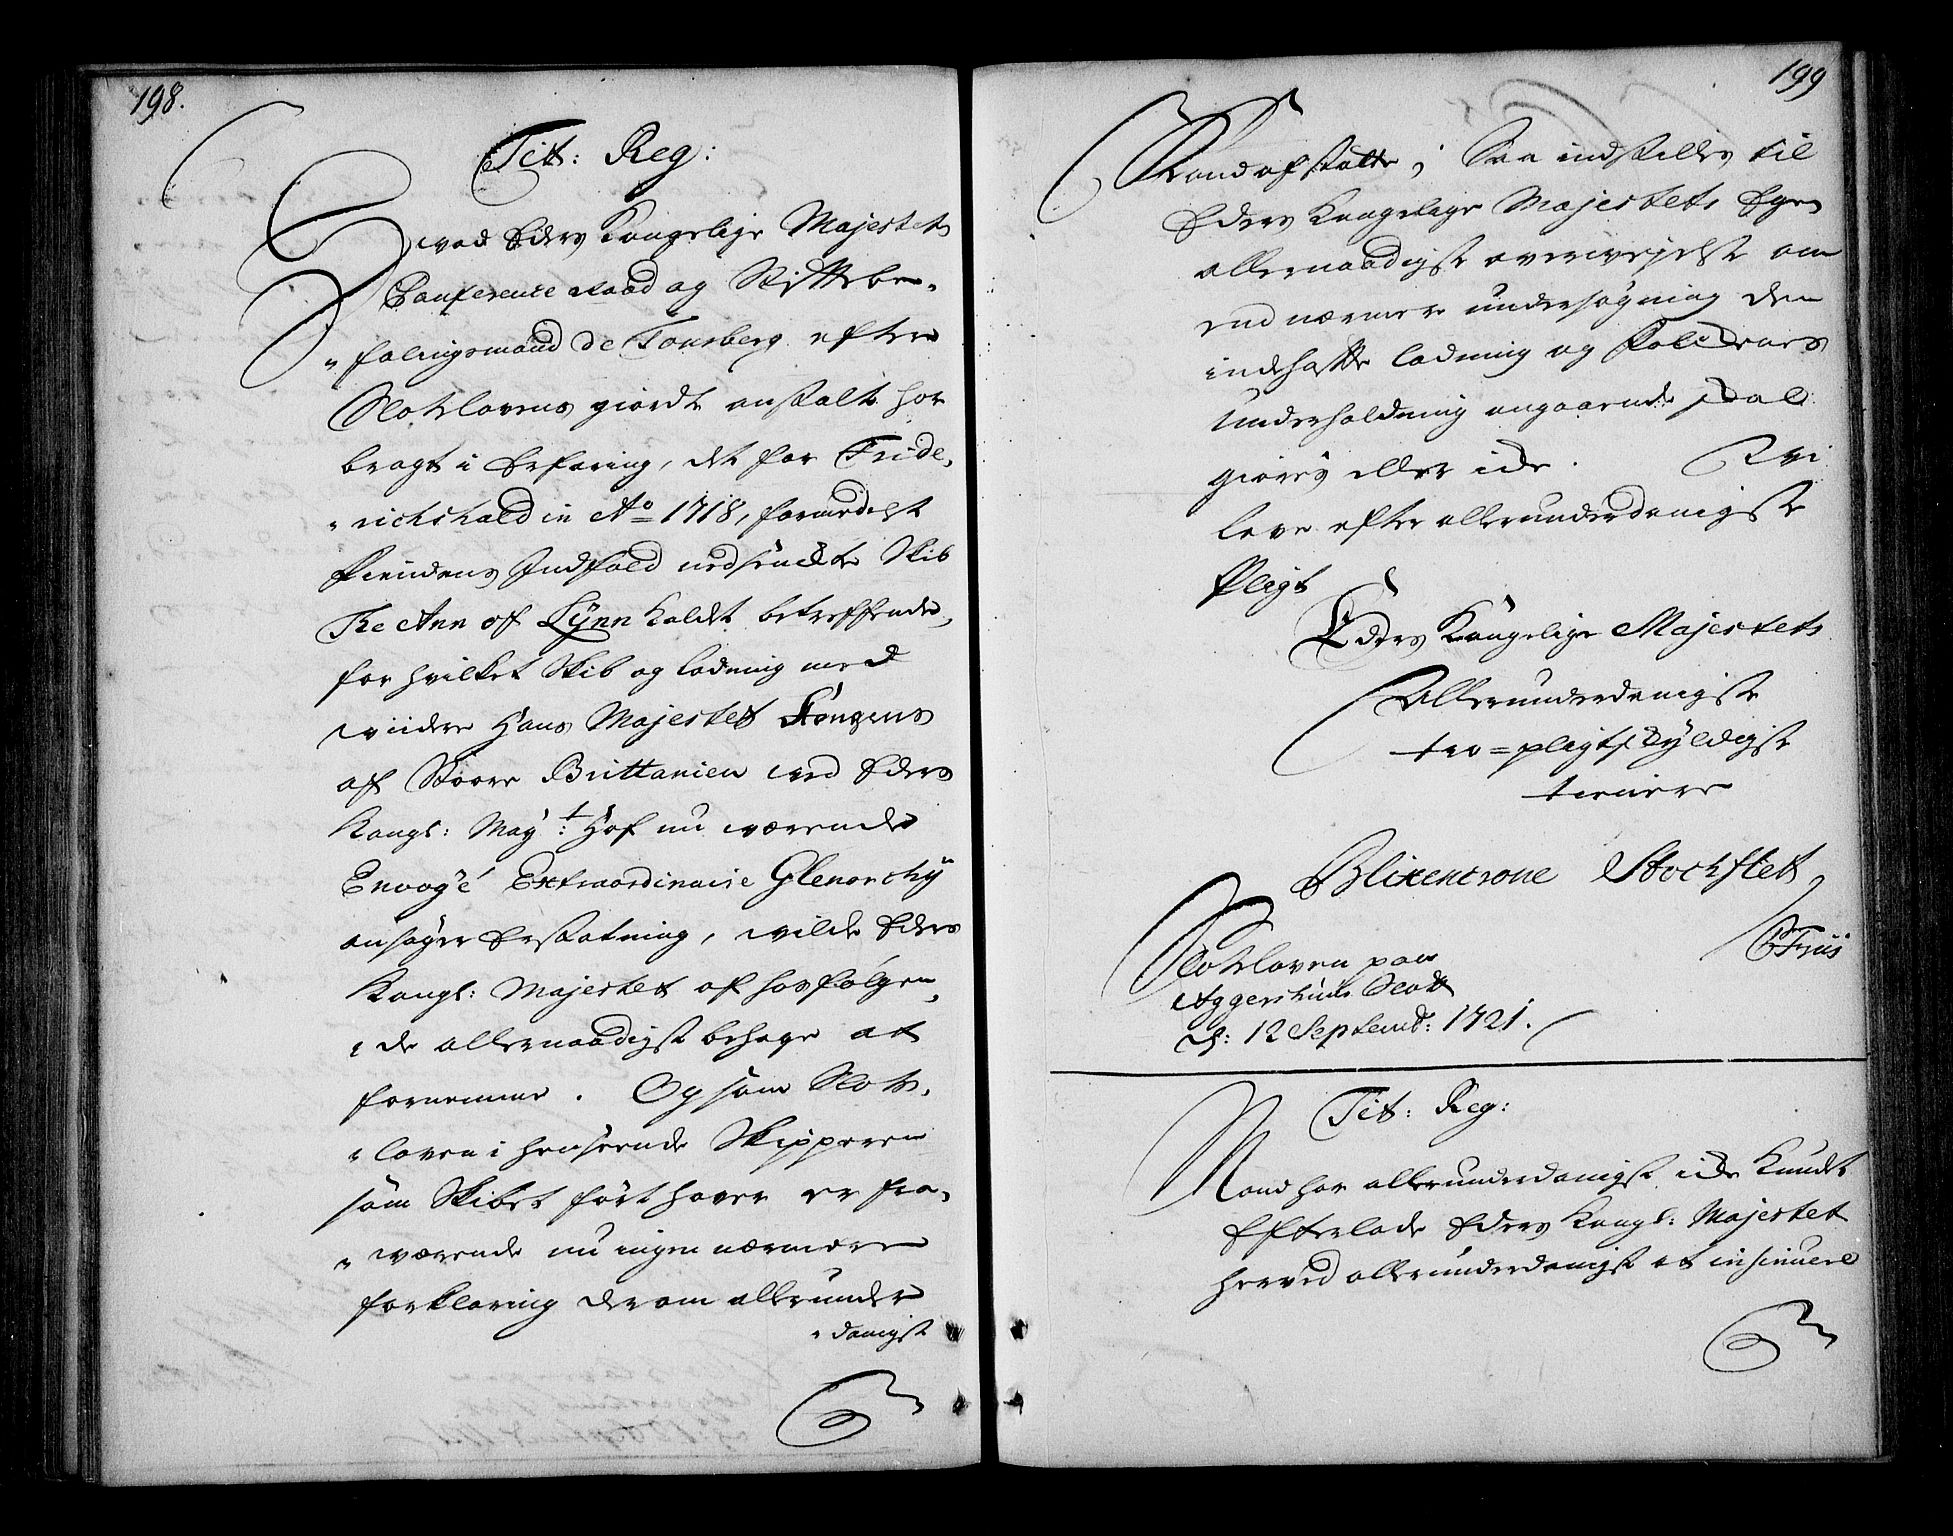 198.
Tit: Reg:
Hvad Eders Kongelige Majestets
Conference Raad og Stiftsbe„
„falingsmand de Tonsberg efter
Slotslovens giorde anstalt har
bragt i Erfaring, det for Fride„
„richshald in Ao 1718, formedelst
Fiendens Indfald nedsenckte Skib
The Ann of Lÿnn kaldet betreffende,
for hvilket Skib og ladning med
viidere Hans Majestet Kongens
af Stoore Brittanien ved Eders
Kongl: Mayt: Hof nu værende
Envoyé Extraordinaire Glenorchÿ
ansøger Erstatning, vilde Eders
Kongl: Majestet af hosfølgen„
„de allernaadigst behage at
fornemme. Og som Slots„
„loven i henseende Skipperen
som Skibet ført haver er fra„
„værende nu ingen nærmere
forklaring derom allerunder
„danigst
199
Kand afstatte; Saa indstilles til
Eders Kongelige Majestets Egen
allernaadigst overveyelse om
end nærmere undersøgning den
indehafte ladning og Folckenes
Underholdning angaaende skal
giøres eller icke. Vi
leve efter allerunderdanigste
Pligt
Eders Kongelige Majestets
Allerunderdanigste
tro=pligtskÿldigste
tienere
Blixencrone Stockflett
Friis
Slotsloven paa
Aggershuus Slott
d: 12 Septemb: 1721.
Tit: Reg:
Mand har allerunderdanigst icke kundt
Efterlade Eders Kongl: Majestet
herved allerunderdanigst at insinuere